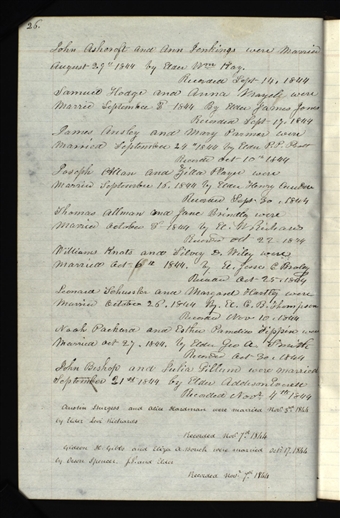 26.
John Ashcroft and Ann Jenkings were Married
August 29th 1844 by Elder Wm Kay.
Recorded Sept. 14, 1844
Samuel Hodge and Anna were
Married September 8th 1844 By Elder James Jones
Recorded Sept. 17, 1844
James and Mary Parmer were
Married September 29th 1844 by Elder P. P. Pratt
Recorded Oct 10th 1844
Joseph Allan and Zilda Playe were
Married September 15. 1844 by Elder Henry
Recorded Sept. 30. 1844
Thomas Allman and Jane Brindley were
Married October 8th 1844 by El. W Richards
Recorded Oct 22. 1844
Williams Knots and D. Wiley were
Married Oct. 6th 1844. by El. Jesse C Braley
Recorded Oct. 25. 1844
Leonard Schussler and Margaret Hartley were
Married October 26. 1844. By El. C. B. Thompson
Recorded Nov. 10. 1844
Noah Packard and Esther Pamelia Tippin were
Married Oct 27. 1844. by Elder Geo A. Smith
Recorded Oct 30. 1844
John Bishop and Julia were married
September 21st 1844 by Elder Addison
Recorded Nov. 4th 1844
Austin Sturgess and Alice Hardman were married Nov. 3d 1844
by Elder Levi Richards
Recorded Nov. 7th 1844
Gideon H. and Eliza A. were married Oct. 17, 1844
by Orson Spencer,
Recorded Nov. 7th 1844